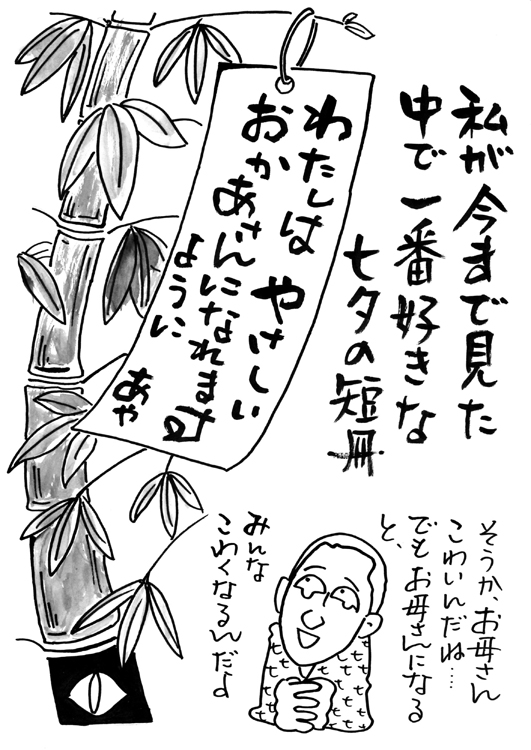 私が今まで見た
中で一番好きな
七夕の短冊
わたしは やさしい
おかあさんになれます
ように あや
そうか、お母さん
こわいんだね……
でもお母さんになる
と、
みんな
こわくなるんだよ